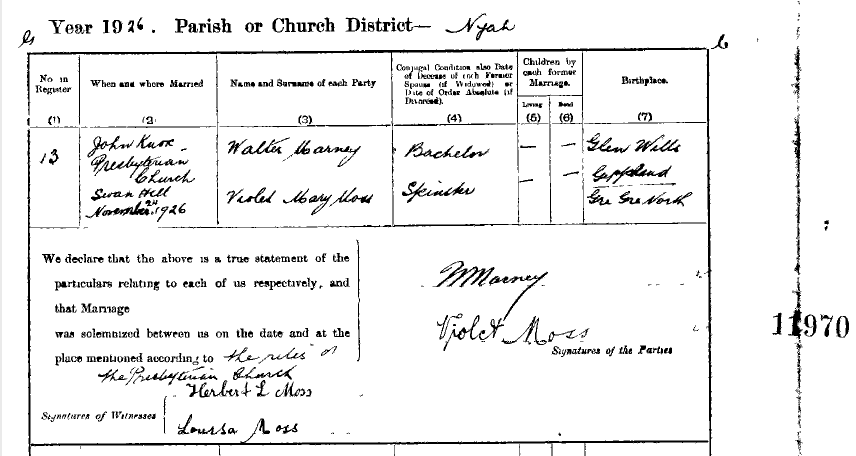 Year 1926. Parish or Church District— Nyah
No in Register
When and where Married
Name and Surname of each Party
Conjugal Condition also Date of Decease of each Former Spouse (if Widowed) or Date of Order Absolute (if Divorced).
Children by each former Marriage.
Living Dead
Birthplace.
(1) (2) (3) (4) (5) (6) (7)
13 John Knox Walter Marney Bachelor — — Glen Wills
Presbyterian
Church — — Gippsland
Swan Hill Violet Mary Moss Spinster Gre Gre North
November 24 1926
We declare that the above is a true statement of the
particulars relating to each of us respectively, and
that Marriage
was solemnized between us on the date and at the
place mentioned according to the rites of
the Presbyterian Church
W Marney
Violet Moss
Signatures of the Parties
11970
Herbert L Moss
Signatures of Witnesses
Louisa Moss